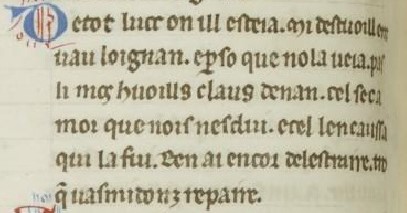 De tot luec on ill esteia. mi destuoill em
uau loignan. e p so que no la ueia. pas
li mos huoills claus denan. cel sec a
mor que nois nesdui. e cel lencaussa
qui la fui. Ben ai en cor de lestraire. tro
q̃ uas midonz repaire.